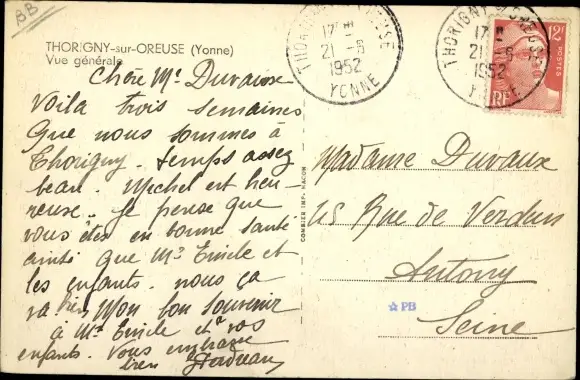 BB
THORIGNY-sur-OREUSE (Yonne)
Vue générale
Chère Me Duvaux
Voilà trois semaines
que nous sommes à
Thorigny. temps assez
beau. Michel est heu-
reuse. Je pense que
vous êtes en bonne santé
ainsi que Mr Emile et
les enfants. nous ça
va bien Mon bon souvenir
à Mr Emile et à vos
enfants. Vous embrasse
bien
THORIGNY S OREUSE
17H
21 - 6
1952
YONNE
THORIGNY S OREUSE
17H
21 - 6
1952
YONNE
2F
POSTES
RF
COMBIER IMP. MACON
Madame Duvaux
25 Rue de Verdun
Antony
Seine
☆ PB